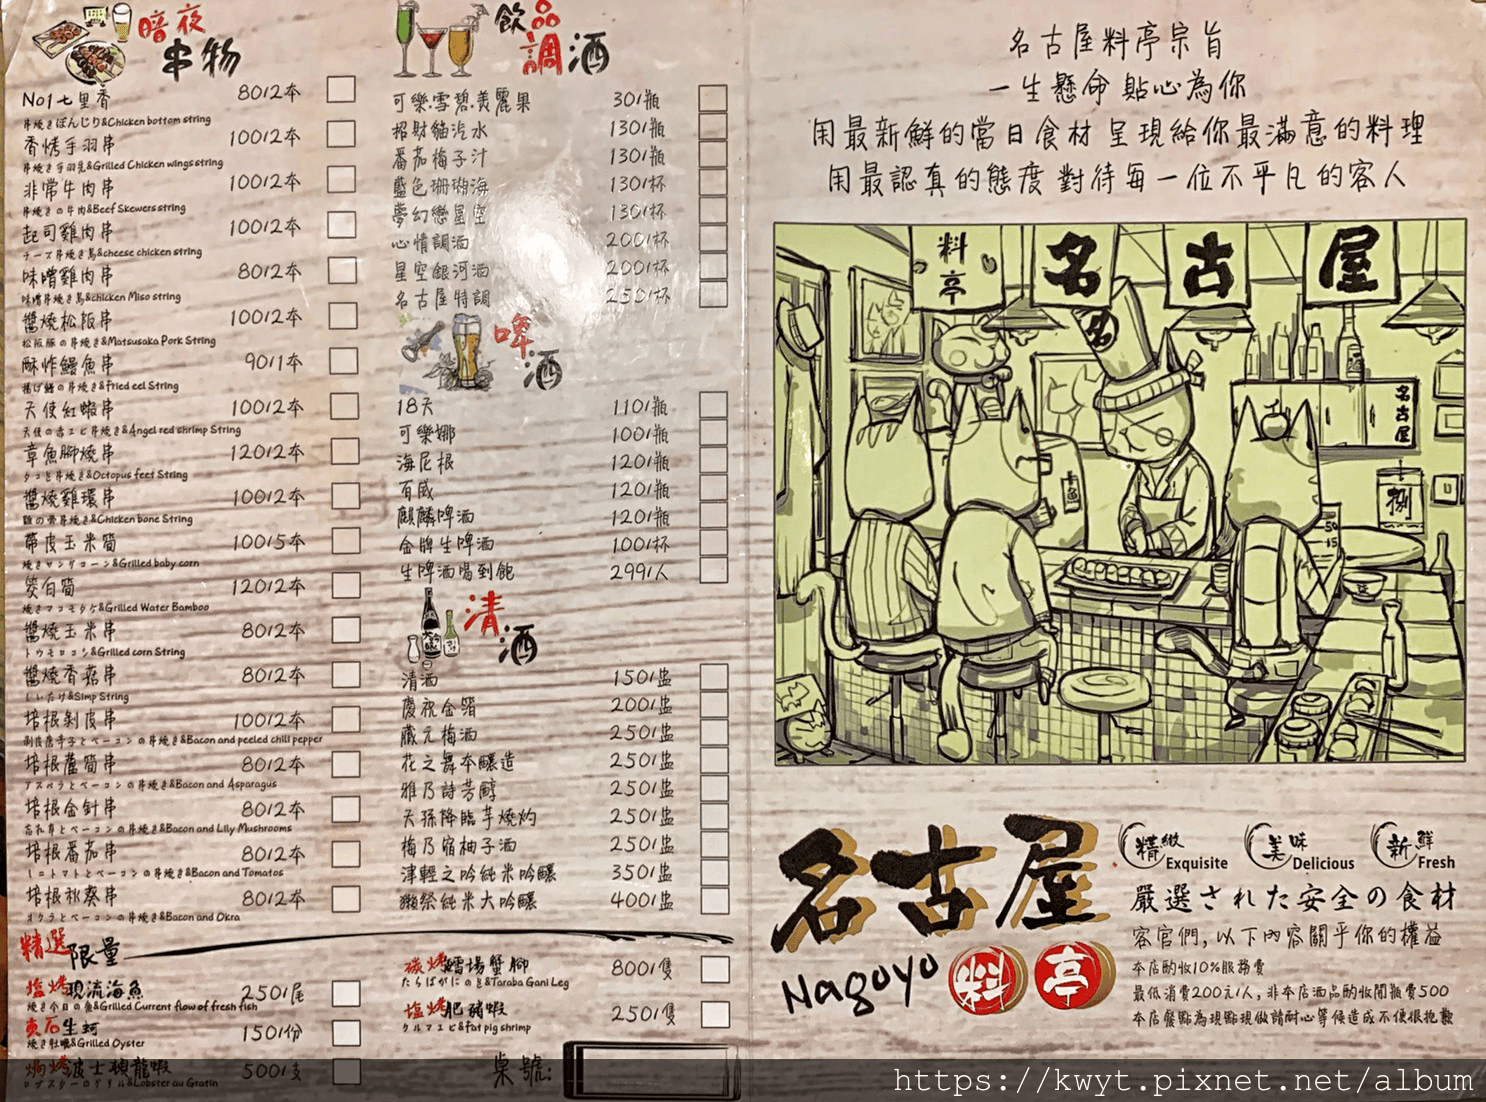 暗夜
串物
No1七里香 80/2本
串焼きぼんじり&Chicken bottom string
香烤手羽串 100/2本
串焼き手羽先&Grilled Chicken wings string
非常牛肉串 100/2本
串焼きの牛肉&Beef Skewers string
起司雞肉串 100/2本
チーズ串焼き鳥&cheese chicken string
味噌雞肉串 80/2本
味噌串焼き鳥&chicken Miso string
醬燒松阪串 100/2本
松阪豚の串焼き&Matsusaka Pork String
酥炸鰻魚串 90/1本
揚げ鰻の串焼き&fried eel String
天使紅蝦串 100/2本
天使の赤エビ串焼き&Angel red shrimp String
章魚腳燒串 120/2本
タコ足串焼き&Octopus feet String
醬燒雞環串 100/2本
鶏の骨串焼き&Chicken bone String
帶皮玉米筍 100/5本
焼きヤングコーン&Grilled baby corn
筊白筍 120/2本
焼きマコモタケ&Grilled Water Bamboo
醬燒玉米串 80/2本
トウモロコシ&Grilled corn String
醬燒香菇串 80/2本
しいたけ&Simp String
培根剝皮串 100/2本
剝皮唐辛子とベーコンの串焼き&Bacon and peeled chili pepper
培根蘆筍串 80/2本
アスパラとベーコンの串焼き&Bacon and Asparagus
培根金針串 80/2本
忘れ草とベーコンの串焼き&Bacon and Lily Mushrooms
培根番茄串 80/2本
ミニトマトとベーコンの串焼き&Bacon and Tomatos
培根秋葵串 80/2本
オクラとベーコンの串焼き&Bacon and Okra
精選限量
塩烤現流海魚 250/尾
焼き今日の魚&Grilled Current flow of fresh fish
東石生蚵 150/份
焼き牡蠣&Grilled Oyster
焗烤波士頓龍蝦 500/支
ロブスターのグリル&Lobster au Gratin
碳烤鱈場蟹腳 800/隻
たらばがにのき&Taraba Gani Leg
塩烤肥豬蝦 250/隻
クルマエビ&fat pig shrimp
桌號:
飲品
調酒
可樂.雪碧.美麗果 30/瓶
招財貓汽水 130/瓶
番茄梅子汁 130/瓶
藍色珊瑚海 130/杯
夢幻戀星空 130/杯
心情調酒 200/杯
星空銀河酒 200/杯
名古屋特調 250/杯
啤酒
18天 110/瓶
可樂娜 100/瓶
海尼根 120/瓶
百威 120/瓶
麒麟啤酒 120/瓶
金牌生啤酒 100/杯
生啤酒喝到飽 299/人
清酒
清酒 150/盅
慶祝金箔 200/盅
藏元梅酒 250/盅
花之舞本釀造 250/盅
雅乃詩芳醇 250/盅
天孫降臨芋燒灼 250/盅
梅乃宿柚子酒 250/盅
津輕之吟純米吟釀 350/盅
獺祭純米大吟釀 400/盅
名古屋料亭宗旨
一生懸命 貼心為你
用最新鮮的當日食材 呈現給你最滿意的料理
用最認真的態度 對待每一位不平凡的客人
料亭 名古屋
名
名古屋
魚
捌
50
15
名古屋
Nagoyo 料亭
精緻 Exquisite
美味 Delicious
新鮮 Fresh
嚴選された安全の食材
客官們,以下內容關乎你的權益
本店酌收10%服務費
最低消費200元/人,非本店酒品酌收開瓶費500
本店餐點為現點現做請耐心等候造成不便很抱歉
https://kwyt.pixnet.net/album